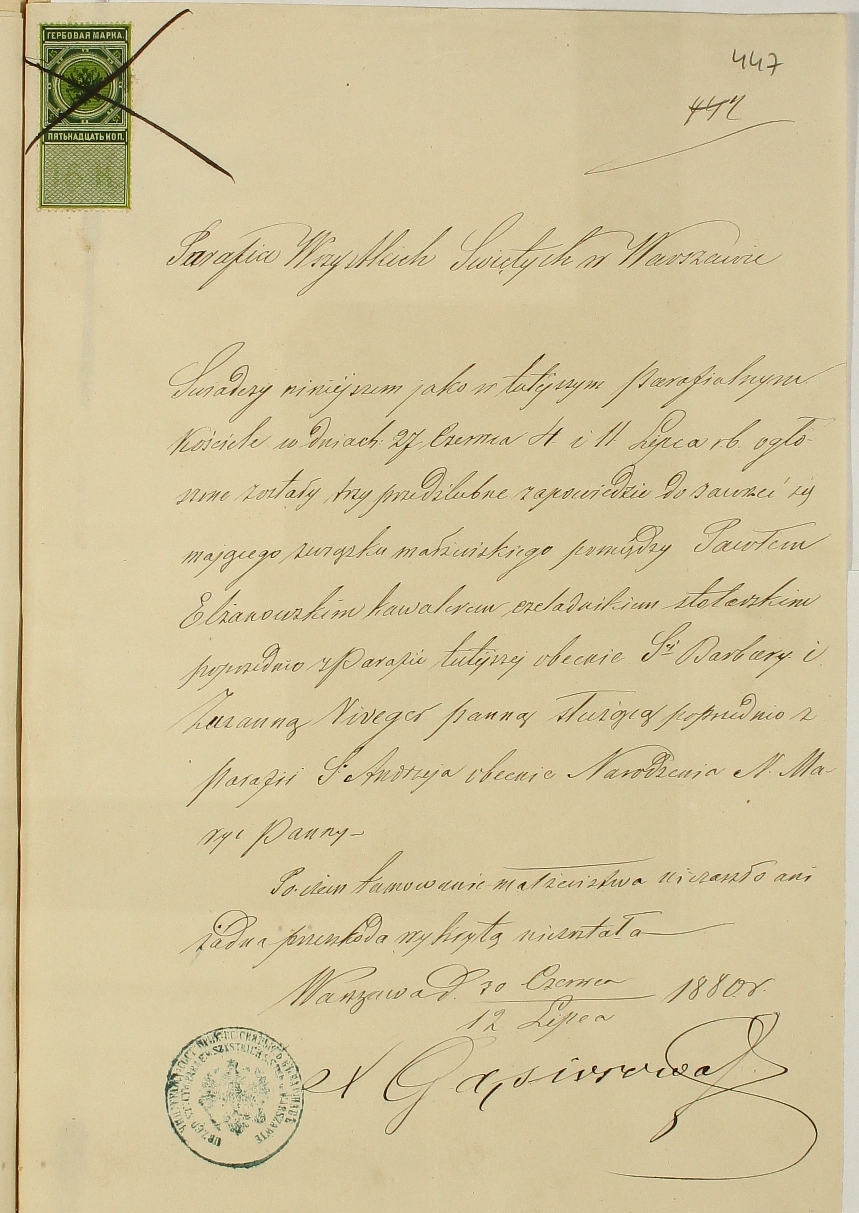 ГЕРБОВАЯ МАРКА.
ПЯТЬНАДЦАТЬ КОП.
447
442
Parafia Wszystkich Świętych w Warszawie
Świadczy niniejszem jako w tutejszym Parafialnym
Kościele w dniach: 27 Czerwca 4 i 11 Lipca rb. ogło-
szone zostały trzy przedślubne zapowiedzie do zawrzeć się
mającego związku małżeńskiego pomiędzy Pawłem
Elżanowskim kawalerem czeladnikiem stolarskim
poprzednio z Parafii tutejszej obecnie Sej Barbary i
Zuzanną Niveger panną służącą poprzednio z
parafii S. Andrzeja obecnie Narodzenia N. Ma-
ryi Panny—
Poczem tamowanie małżeństwa niezaszło ani
żadna przeszkoda wykrytą niezostała—
Warszawa d. 30 Czerwca 1880 r.
12 Lipca
X Gąsiorowski
W WARSZAWIE